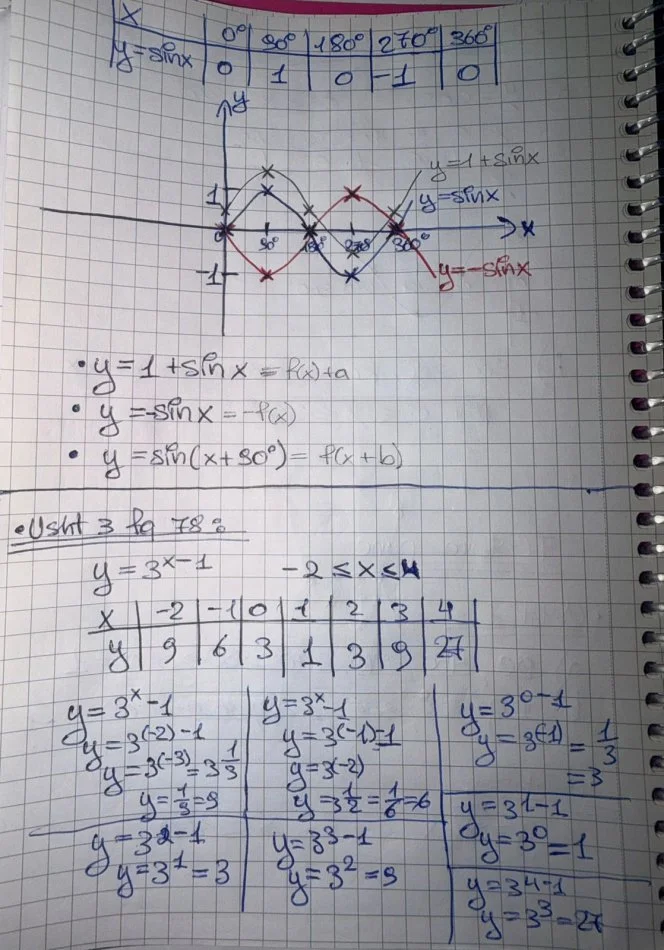 x 0° 90° 180° 270° 360°
y=sinx 0 1 0 -1 0
y
y=1+sinx
1
y=sinx
0 90° 180° 270° 360° x
-1
y=-sinx
• y=1+sinx = f(x)+a
• y=-sinx = -f(x)
• y=sin(x+90°) = f(x+b)
• Usht 3 fq 78:
y=3^(x-1) -2 ≤ x ≤ 4
x -2 -1 0 1 2 3 4
y 9 6 3 1 3 9 27
y=3^x-1
y=3^(-2)-1
y=3^(-3)=3 1/3
y=1/9=9
y=3^x-1
y=3^(-1)-1
y=3^(-2)
y=3 1/2=1/6=6
y=3^(0-1)
y=3^(-1)=1/3
=3
y=3^(1-1)
y=3^0=1
y=3^(2-1)
y=3^1=3
y=3^(3-1)
y=3^2=9
y=3^(4-1)
y=3^3=27